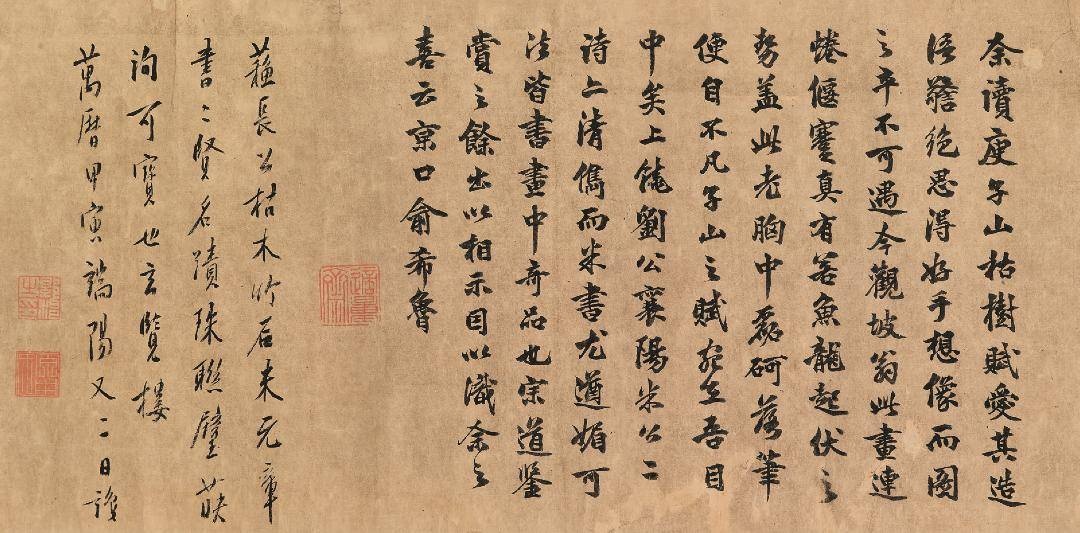 余讀庾子山枯樹賦愛其造
語警絶思得好手想像而圖
之卒不可遇今觀坡翁此畫連
蜷偃蹇真有若魚龍起伏之
勢盖此老胸中磊砢落筆
便自不凡子山之賦宛在吾目
中矣上饒劉公襄陽米公二
詩亦清儁而米書尤遒媚可
法皆書畫中奇品也宗道鑒
賞之餘出以相示因以識余之
喜云京口俞希魯
蘇長公枯木竹石米元章
書二賢名蹟珠聯璧映
洵可寶也玄覽樓
萬曆甲寅端陽又二日識